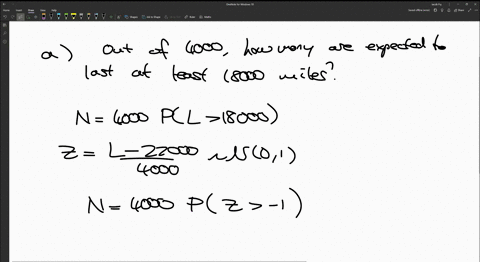 a) Out of 4000, how many are expected to
last at least 18000 miles?
N = 4000 P(L > 18000)
Z = (L - 22000)/4000 ~ N(0,1)
N = 4000 P(Z > -1)